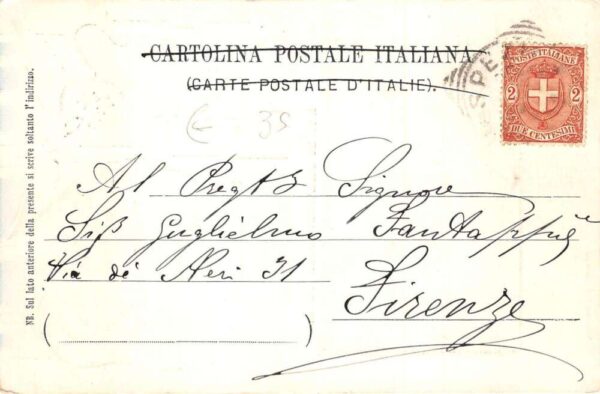 CARTOLINA POSTALE ITALIANA
(CARTE POSTALE D'ITALIE).
POSTE ITALIANE
2 2
DUE CENTESIMI
SPE
€ 35
Al Pregt Signore
Sig Guglielmo Fantappiè
Via dé Neri 31
Firenze
NB. Sul lato anteriore della presente si scrive soltanto l'indirizzo.